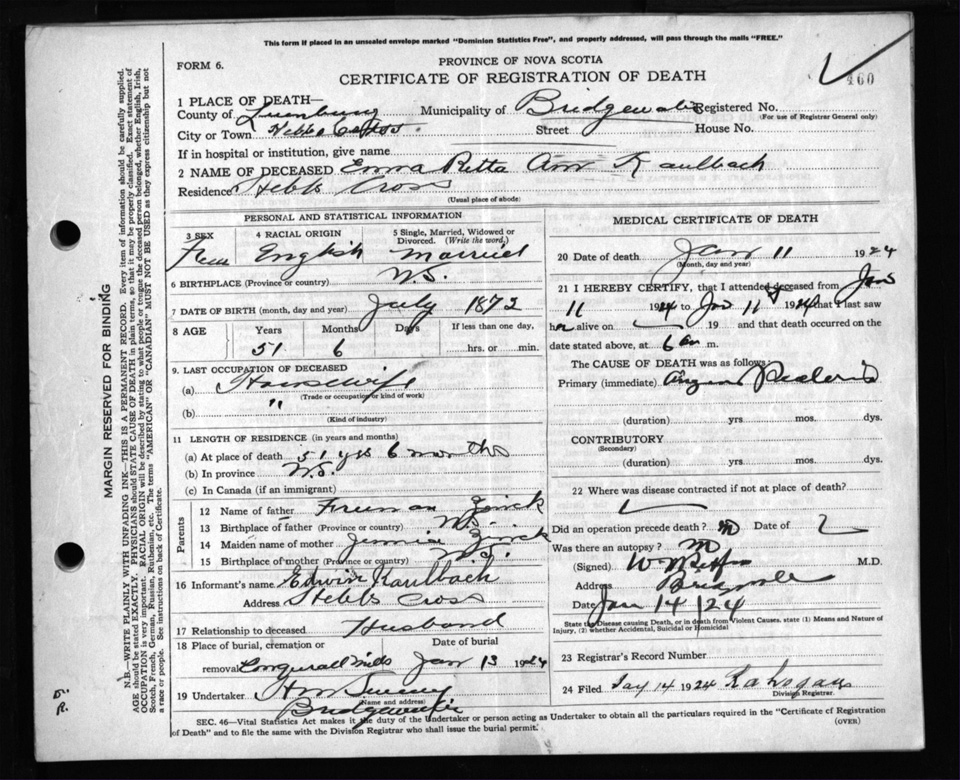 This form if placed in an unsealed envelope marked "Dominion Statistics Free", and properly addressed, will pass through the mails "FREE."
FORM 6.
PROVINCE OF NOVA SCOTIA
CERTIFICATE OF REGISTRATION OF DEATH
460
1 PLACE OF DEATH—
County of Lunenburg Municipality of Bridgewater Registered No.
(For use of Registrar General only)
City or Town Hebbs Cross Street House No.
If in hospital or institution, give name
2 NAME OF DECEASED Emma Retta Ann Kaulbach
Residence Hebbs Cross
(Usual place of abode)
PERSONAL AND STATISTICAL INFORMATION
3 SEX 4 RACIAL ORIGIN 5 Single, Married, Widowed or Divorced. (Write the word.)
Fem English Married
6 BIRTHPLACE (Province or country) N.S.
7 DATE OF BIRTH (month, day and year) July 1872
8 AGE Years Months Days If less than one day,
51 6 hrs. or min.
9. LAST OCCUPATION OF DECEASED
(a) Housewife
(Trade or occupation or kind of work)
(b) "
(Kind of industry)
11 LENGTH OF RESIDENCE (in years and months)
(a) At place of death 51 yrs 6 months
(b) In province N.S.
(c) In Canada (if an immigrant)
Parents
12 Name of father Freeman Zinck
13 Birthplace of father (Province or country) N.S.
14 Maiden name of mother Jennie Zinck
15 Birthplace of mother (Province or country) N.S.
16 Informant's name Edwin Kaulbach
Address Hebbs Cross
17 Relationship to deceased Husband
18 Place of burial, cremation or removal Conquerall Mills Date of burial Jan 13 1924
19 Undertaker
(Name and address)
Bridgewater
MEDICAL CERTIFICATE OF DEATH
20 Date of death Jan 11 1924
(Month, day and year)
21 I HEREBY CERTIFY, that I attended deceased from Jan
11 1924 to Jan 11 1924 that I last saw
her alive on 19 and that death occurred on the
date stated above, at 6 am m.
The CAUSE OF DEATH was as follows:
Primary (immediate) Angina Pectoris
(duration) yrs mos. dys.
CONTRIBUTORY
(Secondary)
(duration) yrs. mos. dys.
22 Where was disease contracted if not at place of death?
Did an operation precede death? no Date of
Was there an autopsy? no
(Signed) M.D.
Address
Date Jan 14 / 24
State the Disease causing Death, or in death from Violent Causes, state (1) Means and Nature of Injury, (2) whether Accidental, Suicidal or Homicidal
23 Registrar's Record Number
24 Filed Jay 14 1924
Division Registrar.
SEC. 46—Vital Statistics Act makes it the duty of the Undertaker or person acting as Undertaker to obtain all the particulars required in the "Certificate of Registration
of Death" and to file the same with the Division Registrar who shall issue the burial permit.
(OVER)
MARGIN RESERVED FOR BINDING
N.B.—WRITE PLAINLY WITH UNFADING INK—THIS IS A PERMANENT RECORD. Every item of information should be carefully supplied.
AGE should be stated EXACTLY. PHYSICIANS should STATE CAUSE OF DEATH in plain terms, so that it may be properly classified. Exact statement of
OCCUPATION is very important. RACIAL ORIGIN will be described by stating to what people or tongue the deceased person belonged, whether English, Irish,
Scotch, French, German, Russian, Ruthenian, etc. The terms "AMERICAN" or "CANADIAN" MUST NOT BE USED as they express citizenship but not
a race or people. See instructions on back of Certificate.